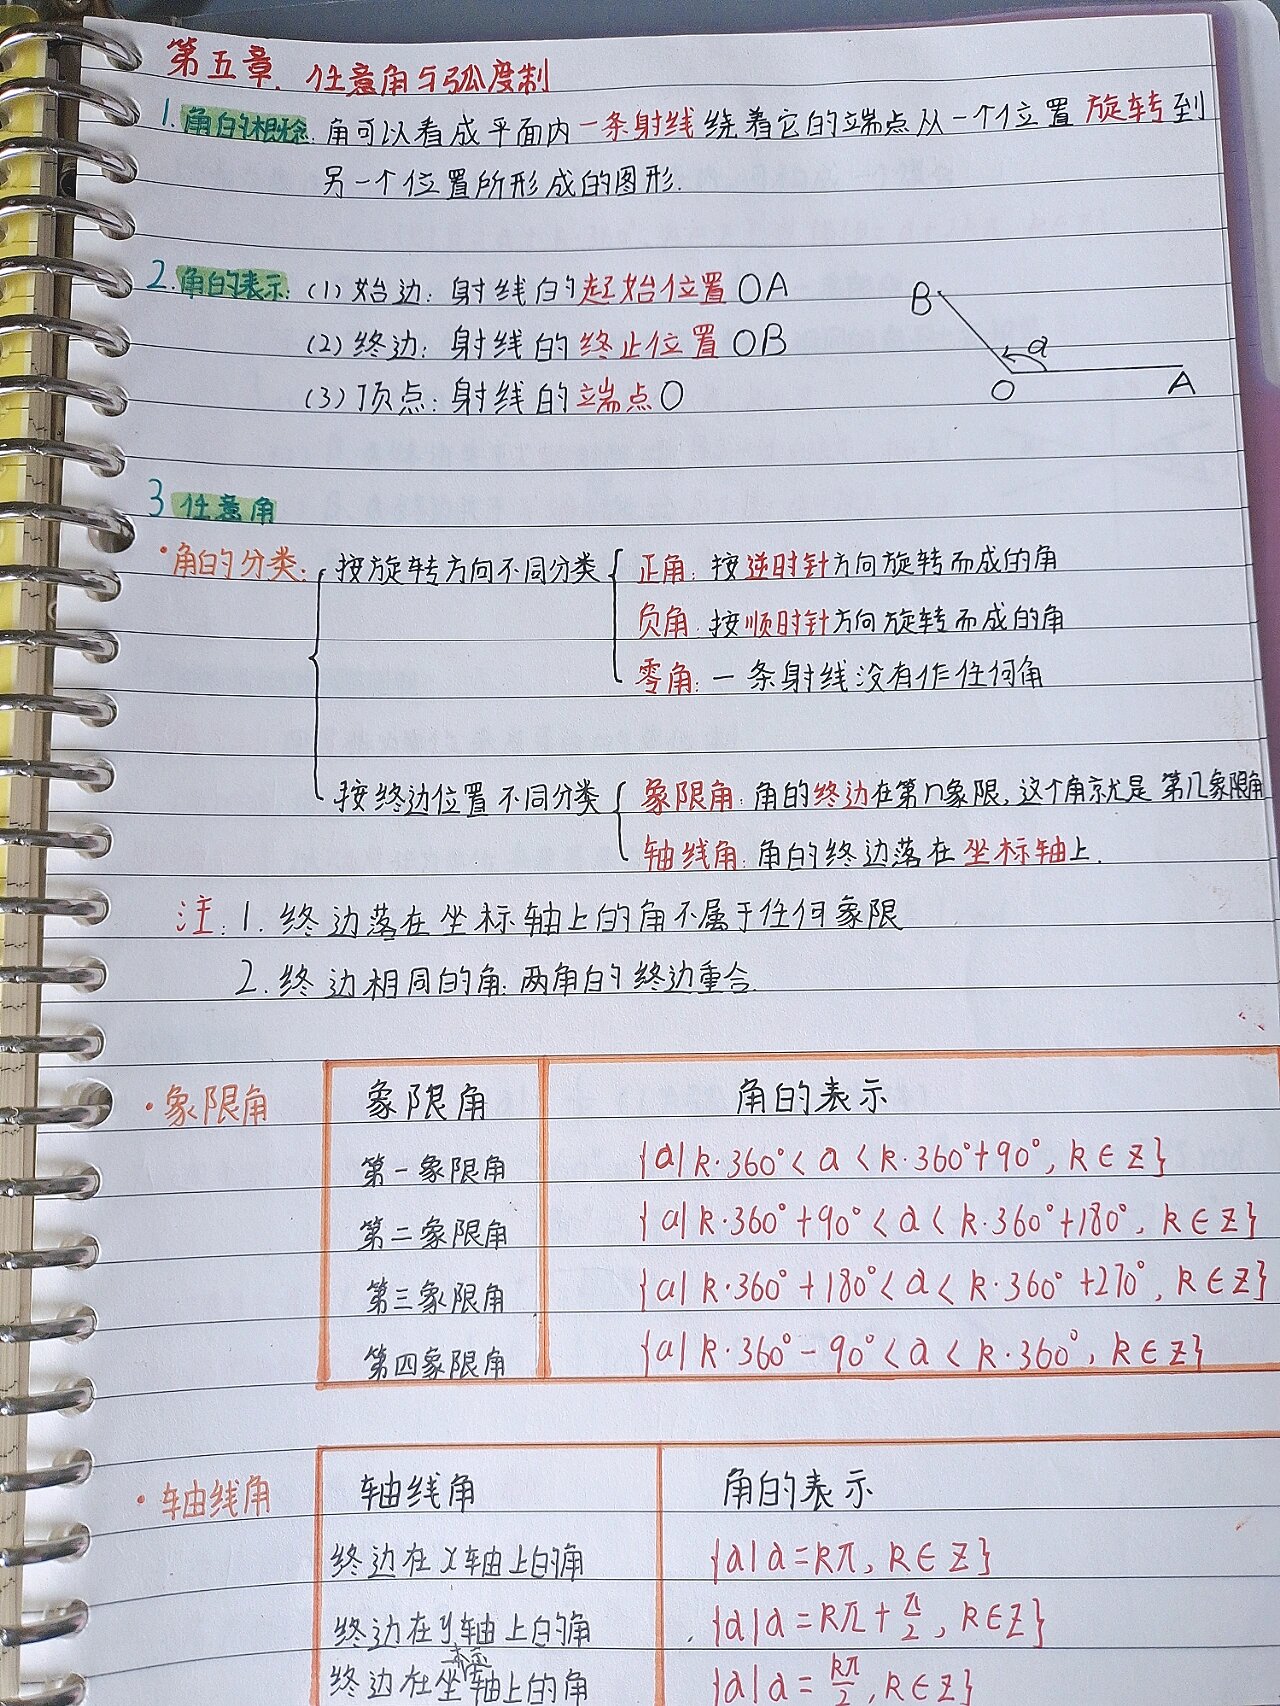 第五章. 任意角与弧度制
1. 角的概念: 角可以看成平面内一条射线绕着它的端点从一个位置旋转到
另一个位置所形成的图形.
2. 角的表示: (1) 始边: 射线的起始位置OA
(2) 终边: 射线的终止位置OB
(3) 顶点: 射线的端点O
B
α
O
A
3 任意角
·角的分类: 按旋转方向不同分类 正角: 按逆时针方向旋转而成的角
负角: 按顺时针方向旋转而成的角
零角: 一条射线没有作任何角
按终边位置不同分类 象限角: 角的终边在第n象限,这个角就是第几象限角
轴线角: 角的终边落在坐标轴上.
注: 1. 终边落在坐标轴上的角不属于任何象限
2. 终边相同的角: 两角的终边重合.
·象限角 象限角 角的表示
第一象限角 {α|k·360°<α<k·360°+90°, k∈Z}
第二象限角 {α|k·360°+90°<α<k·360°+180°, k∈Z}
第三象限角 {α|k·360°+180°<α<k·360°+270°, k∈Z}
第四象限角 {α|k·360°-90°<α<k·360°, k∈Z}
·轴线角 轴线角 角的表示
终边在x轴上的角 {α|α=kπ, k∈Z}
终边在y轴上的角 {α|α=kπ+π/2, k∈Z}
终边在坐标轴上的角 {α|α=kπ/2, k∈Z}